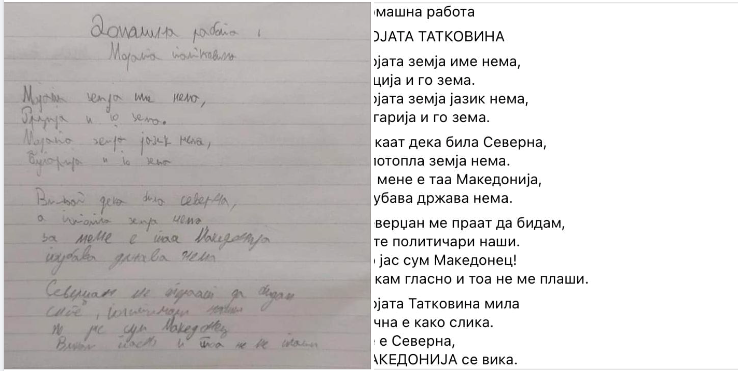 Домашна работа
Мојата татковина
Мојата земја име нема,
Грција и го зема.
Мојата земја јазик нема,
Бугарија и го зема
Викаат дека била северна,
а потопла земја нема
за мене е таа Македонија
поубава држава нема
Северџан ме праат да бидам
сите политичари наши
но јас сум Македонец
Викам гласно и тоа не ме плаши
омашна работа
ОЈАТА ТАТКОВИНА
ојата земја име нема,
ција и го зема.
ојата земја јазик нема,
гарија и го зема.
каат дека била Северна,
потопла земја нема.
мене е таа Македонија,
убава држава нема.
верџан ме праат да бидам,
те политичари наши.
јас сум Македонец!
кам гласно и тоа не ме плаши.
ојата Татковина мила
чна е како слика.
е Северна,
АКЕДОНИЈА се вика.